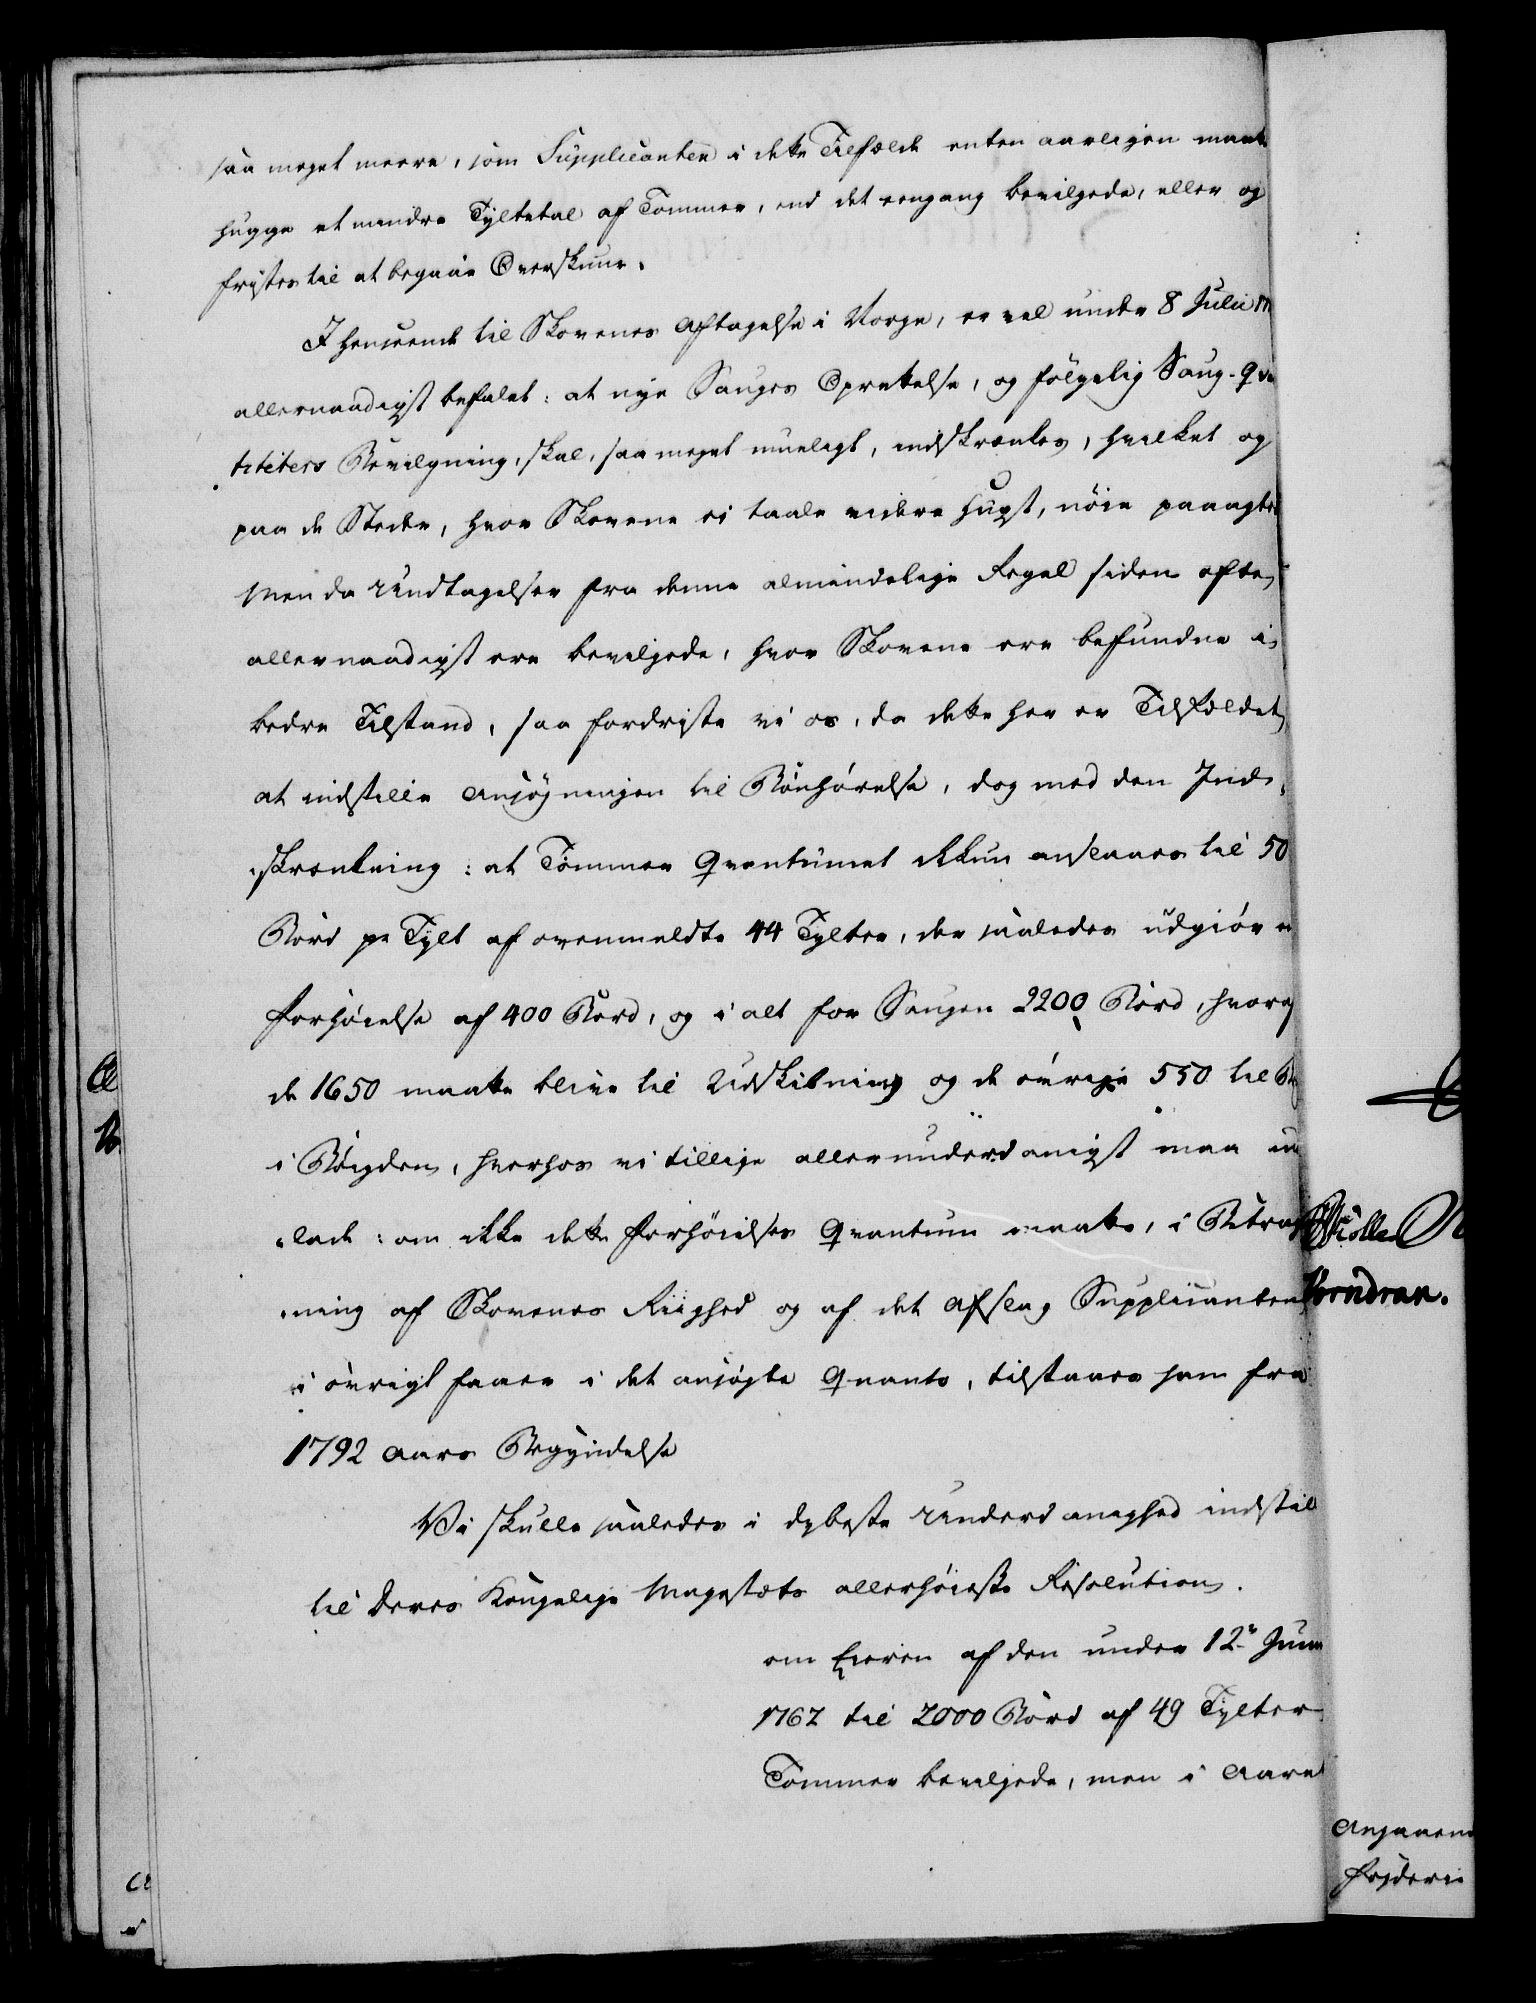 saa meget meere, som Supplicanten i dette Tilfælde enten aarligen maatte
hugge et mindre Tyltetal af Tømmer, end det eengang bevilgede, eller og
fristes til at begaae Overskuur.
I Henseende til Skovenes Aftagelse i Norge, er vel under 8 Julii
allernaadigst befalet: at nye Sauges Oprettelse, og følgelig Saug-Qvan
titeters Bevilgning, skal, saa meget mueligt, indskrænkes, hvilket og
paa de Steder, hvor Skovene ei taale videre Hugst, nöie paaagtes
Men da Undtagelser fra denne almindelige Regel siden ofte
allernaadigst ere bevilgede, hvor Skovene ere befundne i
bedre Tilstand, saa fordriste vi os, da dette her er Tilfældet,
at indstille Ansøgningen til Bönhörelse, dog med den Ind-
skrænkning: at Tømmer Qvantumet ikkun ansaaes til 50
Bord pr Tylt af ovenmeldte 44 Tylter, der saaledes udgiør en
Forhöielse af 400 Bord, og i alt for Saugen 2200 Bord, hvoraf
de 1650 maatte blive til Udskibning og de øvrige 550 til
i Bøigden, hvorhos vi tillige allerunderdanigst maa
lade: om ikke dette Forhöielses Qvantum maatte, i Betragt
ning af Skovenes Riighed og af det Afslag Supplicanten
i øvrigt faaer i det ansøgte Qvanto, tilstaaes ham fra
1792 Aars Begyndelse
Vi skulle saaledes i dybeste Underdanighed indstil
til Deres Kongelige Majestæts allerhöieste Resolution.
om Eieren af den under 12te Junii
1762 til 2000 Bord af 49 Tylter
Tømmer bevilgede, men i Aaret
Wormdran.
Angaaen